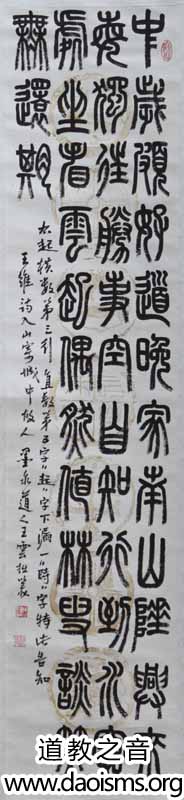 中歲頗好道晚家南山陲興來
每獨往勝事空自知行到水窮
處坐看雲起偶然值林叟談笑
無還期
右起橫數第三行直數第五字"起"字下漏一"時"字特此告知
王維詩入山寄城中故人 墨泉道人王雲
道教之音
www.daoisms.org